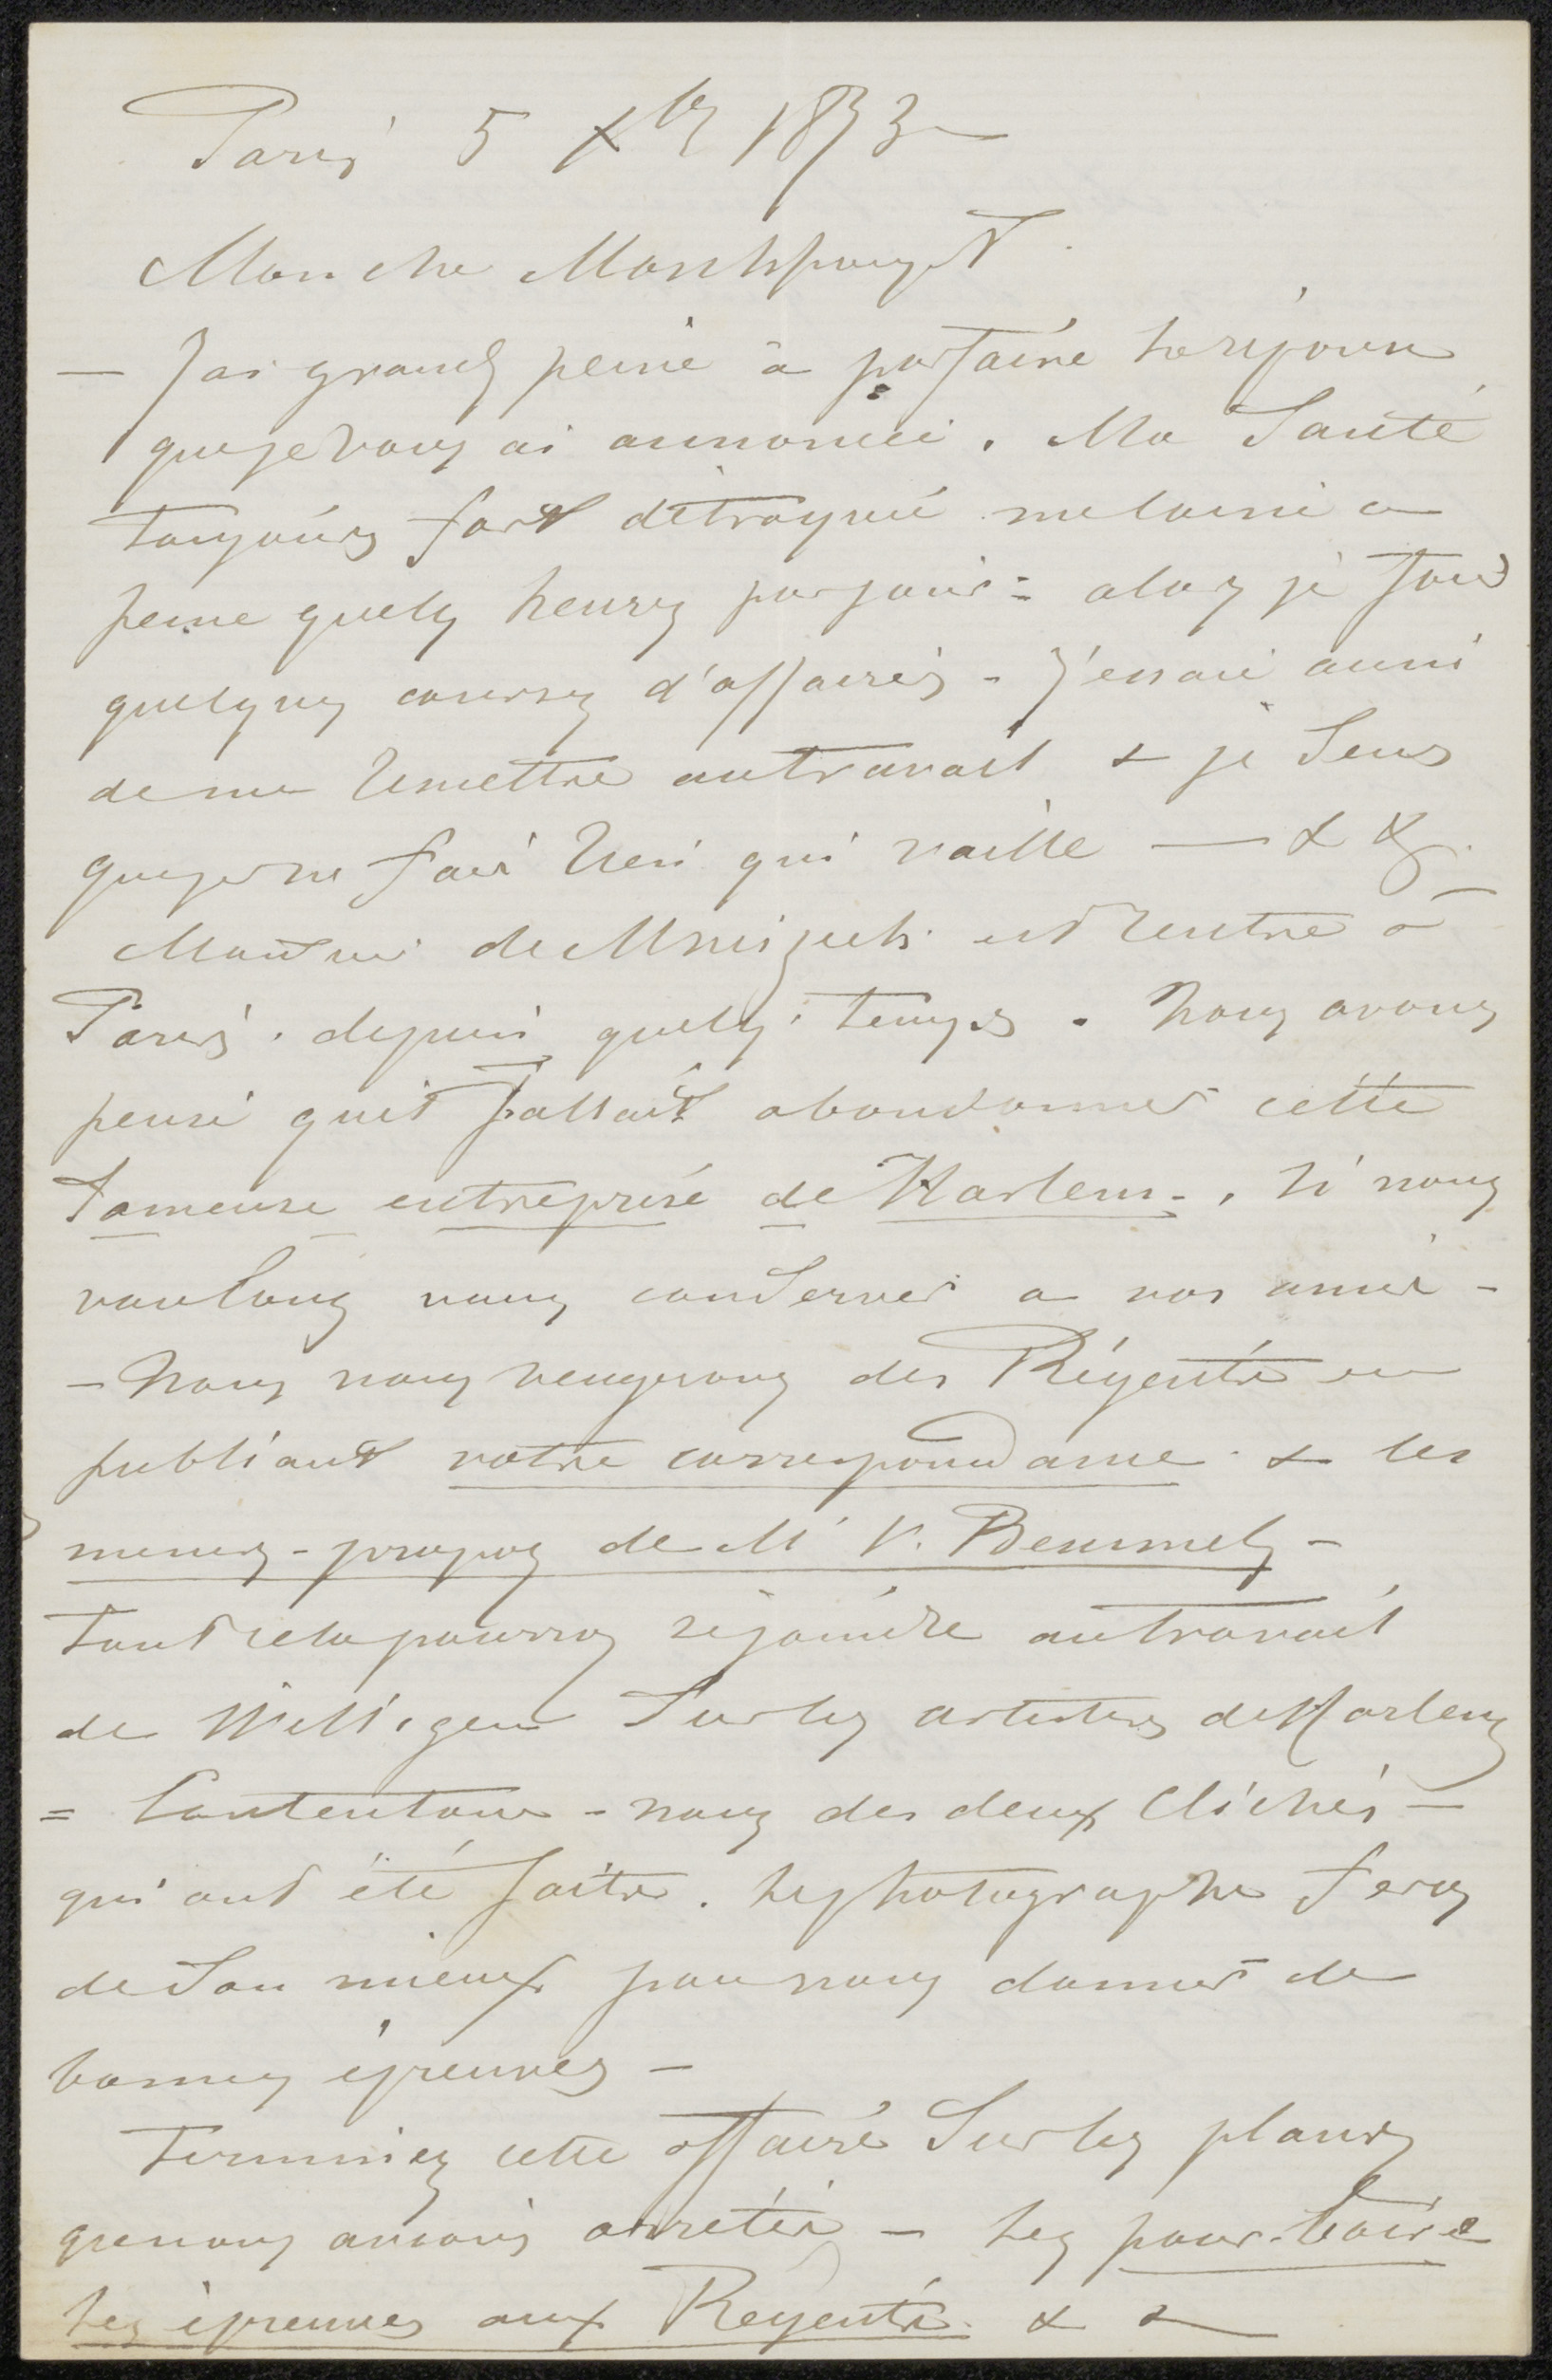 Paris 5 Xbre 1873
Mon cher
— J'ai grand peine à parfaire
que je vous ai annoncé. Ma Santé
toujours fort détraquée me laisse a
peine quelq heures par jour = alors je fais
quelques courses d'affaires - J'essaie aussi
de me remettre au travail & je Sens
que je ne fais rien qui vaille — & &.
Monsieur de est rentré à
Paris . depuis quelq. temps . Nous avons
pensé qu'il fallait abandonner cette
fameuse entreprise de Harlem - . Si nous
voulons nous conserver a nos amis -
- Nous nous vengerons des Régents en
publiant votre correspondance & les
menus-propos de Mr V. Bemmels -
Tout cela pourra rejoindre au travail
de Willigen Sur les artistes de Harlem
= Contentons-nous des deux Clichés —
qui ont été faits . Le photographe fera
de Son mieux pour nous donner de
bonnes épreuves -
Terminez cette affaire Sur les plans
que nous avons arrêtés — Les pour-boire
Les épreuves aux Regents & &